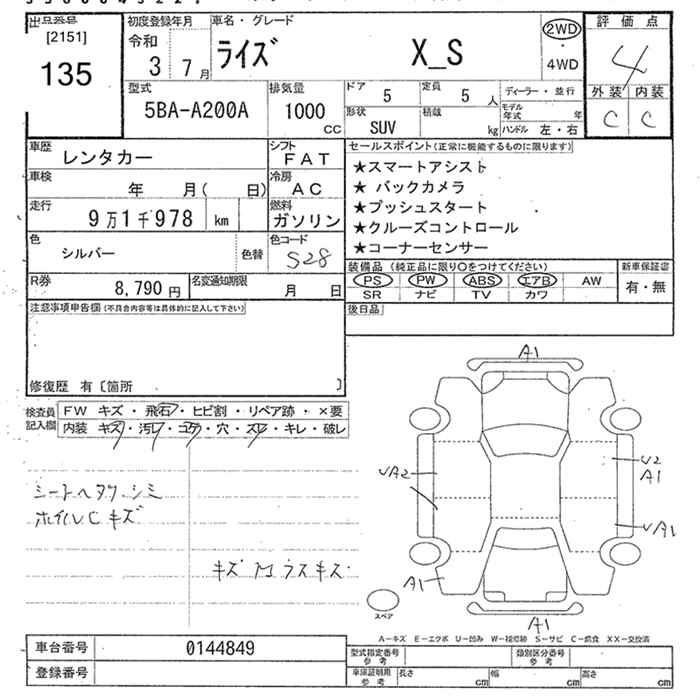 出品番号
[2151]
135
初度登録年月
令和
3 7月
車名・グレード
ライズ X_S
2WD
・
4WD
評価点
4
外装 内装
C C
型式
5BA-A200A
排気量
1000
CC
ドア 5
定員 5 人
形状
SUV
積載
kg
ディーラー・並行
モデル年式 年
ハンドル 左・右
車歴 レンタカー
シフト
FAT
車検 年 月( 日)
冷房
AC
走行 9万1千978 km
燃料
ガソリン
色 シルバー
色替
色コード
S28
R券 8,790円
名変通知期限
月 日
セールスポイント(正常に機能するものに限ります)
★スマートアシスト
★ バックカメラ
★プッシュスタート
★クルーズコントロール
★コーナーセンサー
装備品 (純正品に限り〇をつけてください)
PS PW ABS エアB AW
SR ナビ TV カワ
新車保証書
有・無
後日品
注意事項申告欄(不具合内容等は具体的に記入して下さい)
修復歴 有〔箇所 〕
検査員記入欄
FW キズ・飛石・ヒビ割・リペア跡・×要
内装 キズ・汚レ・コゲ・穴・スレ・キレ・破レ
シートヘタリ、シミ
ホイルC キズ
A1
UA2
U2
A1
UA1
A1
A1
スペア
A-キズ E-エクボ U-凹み W-補修跡 S-サビ C-腐食 XX-交換済
車台番号 0144849
登録番号
型式指定番号
参考
類別区分番号
参考
車庫証明用
参考
長さ cm
幅 cm
高さ cm